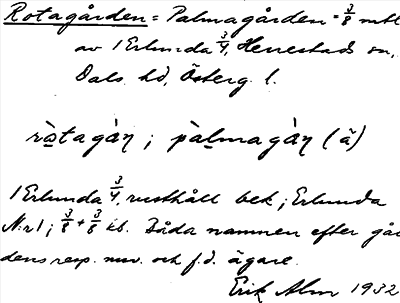 Rotagården = Palmagården = 3/8 mtl
av 1 Erlunda 3/4, Herrestads sn,
Dals hd, Österg. l.
ròtagàṇ; pàlmagàṇ (ã)
1 Erlunda 3/4, rusthåll bek; Erlunda
N:r 1; 3/8 + 3/8 kb. Båda namnen efter går
dens resp. nuv. och f.d. ägare.
Erik Alm 1932